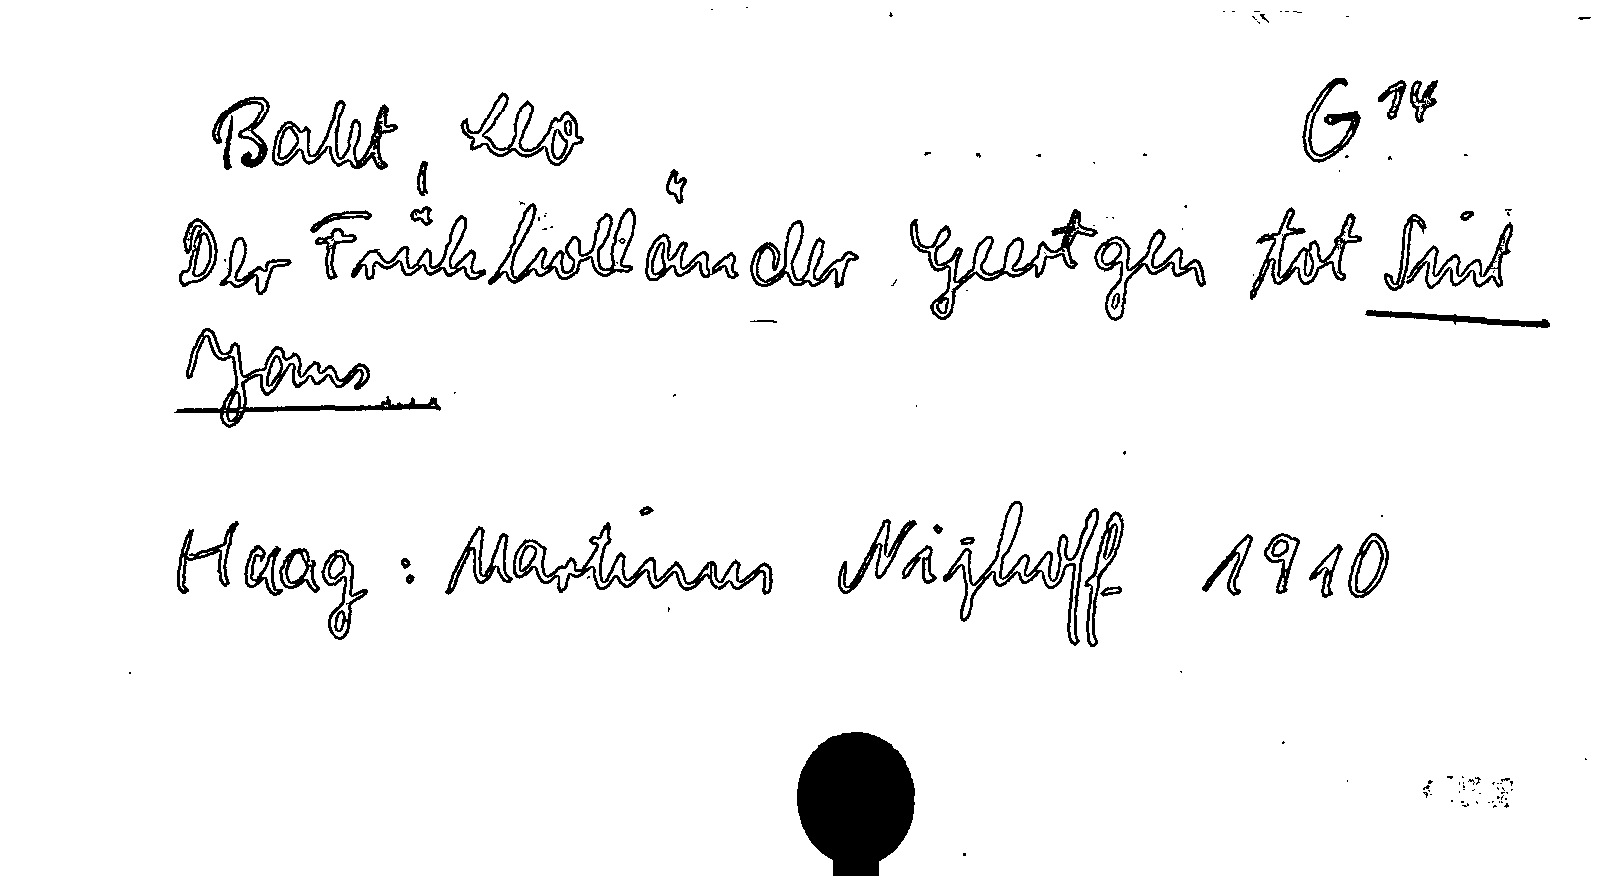 Balet, Leo G 14
Der Frühholländer Geertgen tot Sint
Jans
Haag: Martinus Nijhoff 1910